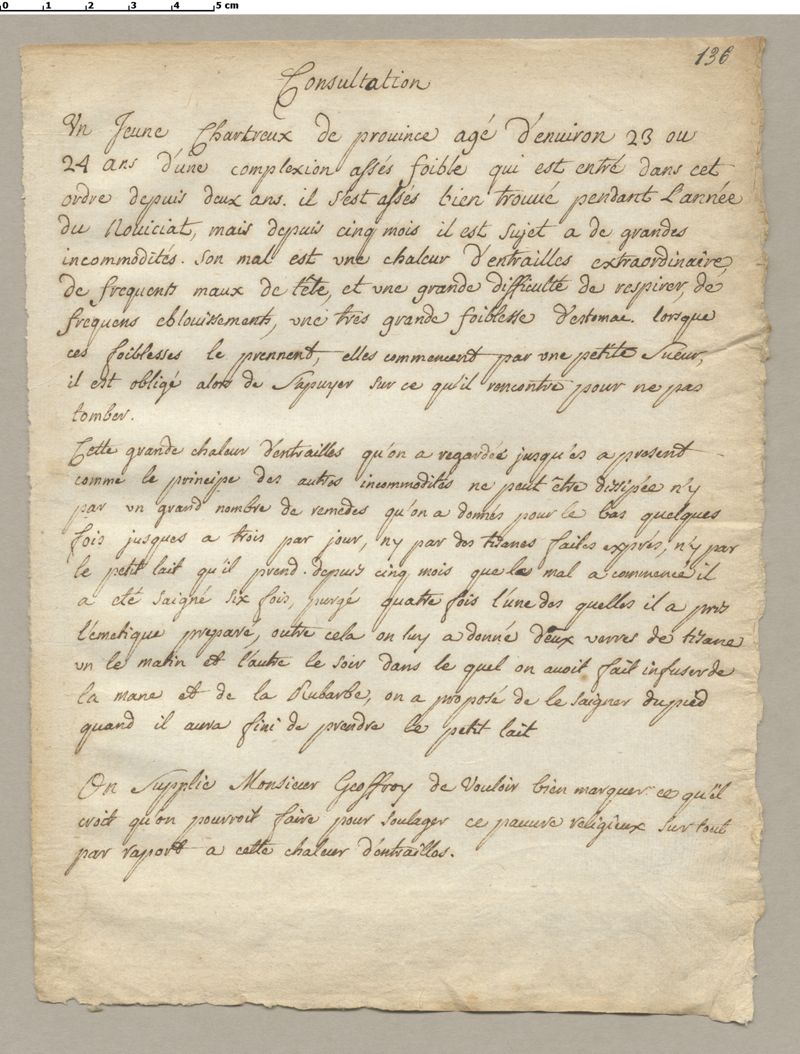 0 1 2 3 4 5 cm
136
Consultation
Un Jeune Chartreux de province agé d'enuiron 23 ou
24 ans d'une complexion assés foible qui est entré dans cet
ordre depuis deux ans. il s'est assés bien trouué pendant L'année
du Nouiciat, mais depuis cinq mois il est sujet a de grandes
incommodités. son mal est vne chaleur d'entrailles extraordinaire,
de frequents maux de tête, et vne grande difficulté de respirer, de
frequens eblouissements, vne tres grande foiblesse d'estomac. lorsque
ces foiblesses le prennent, elles commencent par vne petite sueur,
il est obligé alors de s'apuyer sur ce qu'il rencontre pour ne pas
tomber.
Cette grande chaleur d'entrailles qu'on a regardée jusqu'es a present
comme le principe des autres incommodités ne peut être dissipée n'y
par vn grand nombre de remedes qu'on a donnés pour le bas quelques
fois jusques a trois par jour, n'y par des tisanes faites exprés, n'y par
le petit lait qu'il prend. depuis cinq mois que le mal a commencé il
a eté saigné six fois, purgé quatre fois l'une des quelles il a pris
l'émetique preparé, outre cela on luy a donné deux verres de tisane
vn le matin et l'autre le soir dans le quel on auoit fait infuser de
la mane et de la Rubarbe, on a proposé de le saigner du pied
quand il aura fini de prendre le petit lait
On Supplie Monsieur Geoffroy de Vouloir bien marquer ce qu'il
croit qu'on pourroit faire pour soulager ce pauure religieux sur tout
par raport a cette chaleur d'entrailles.